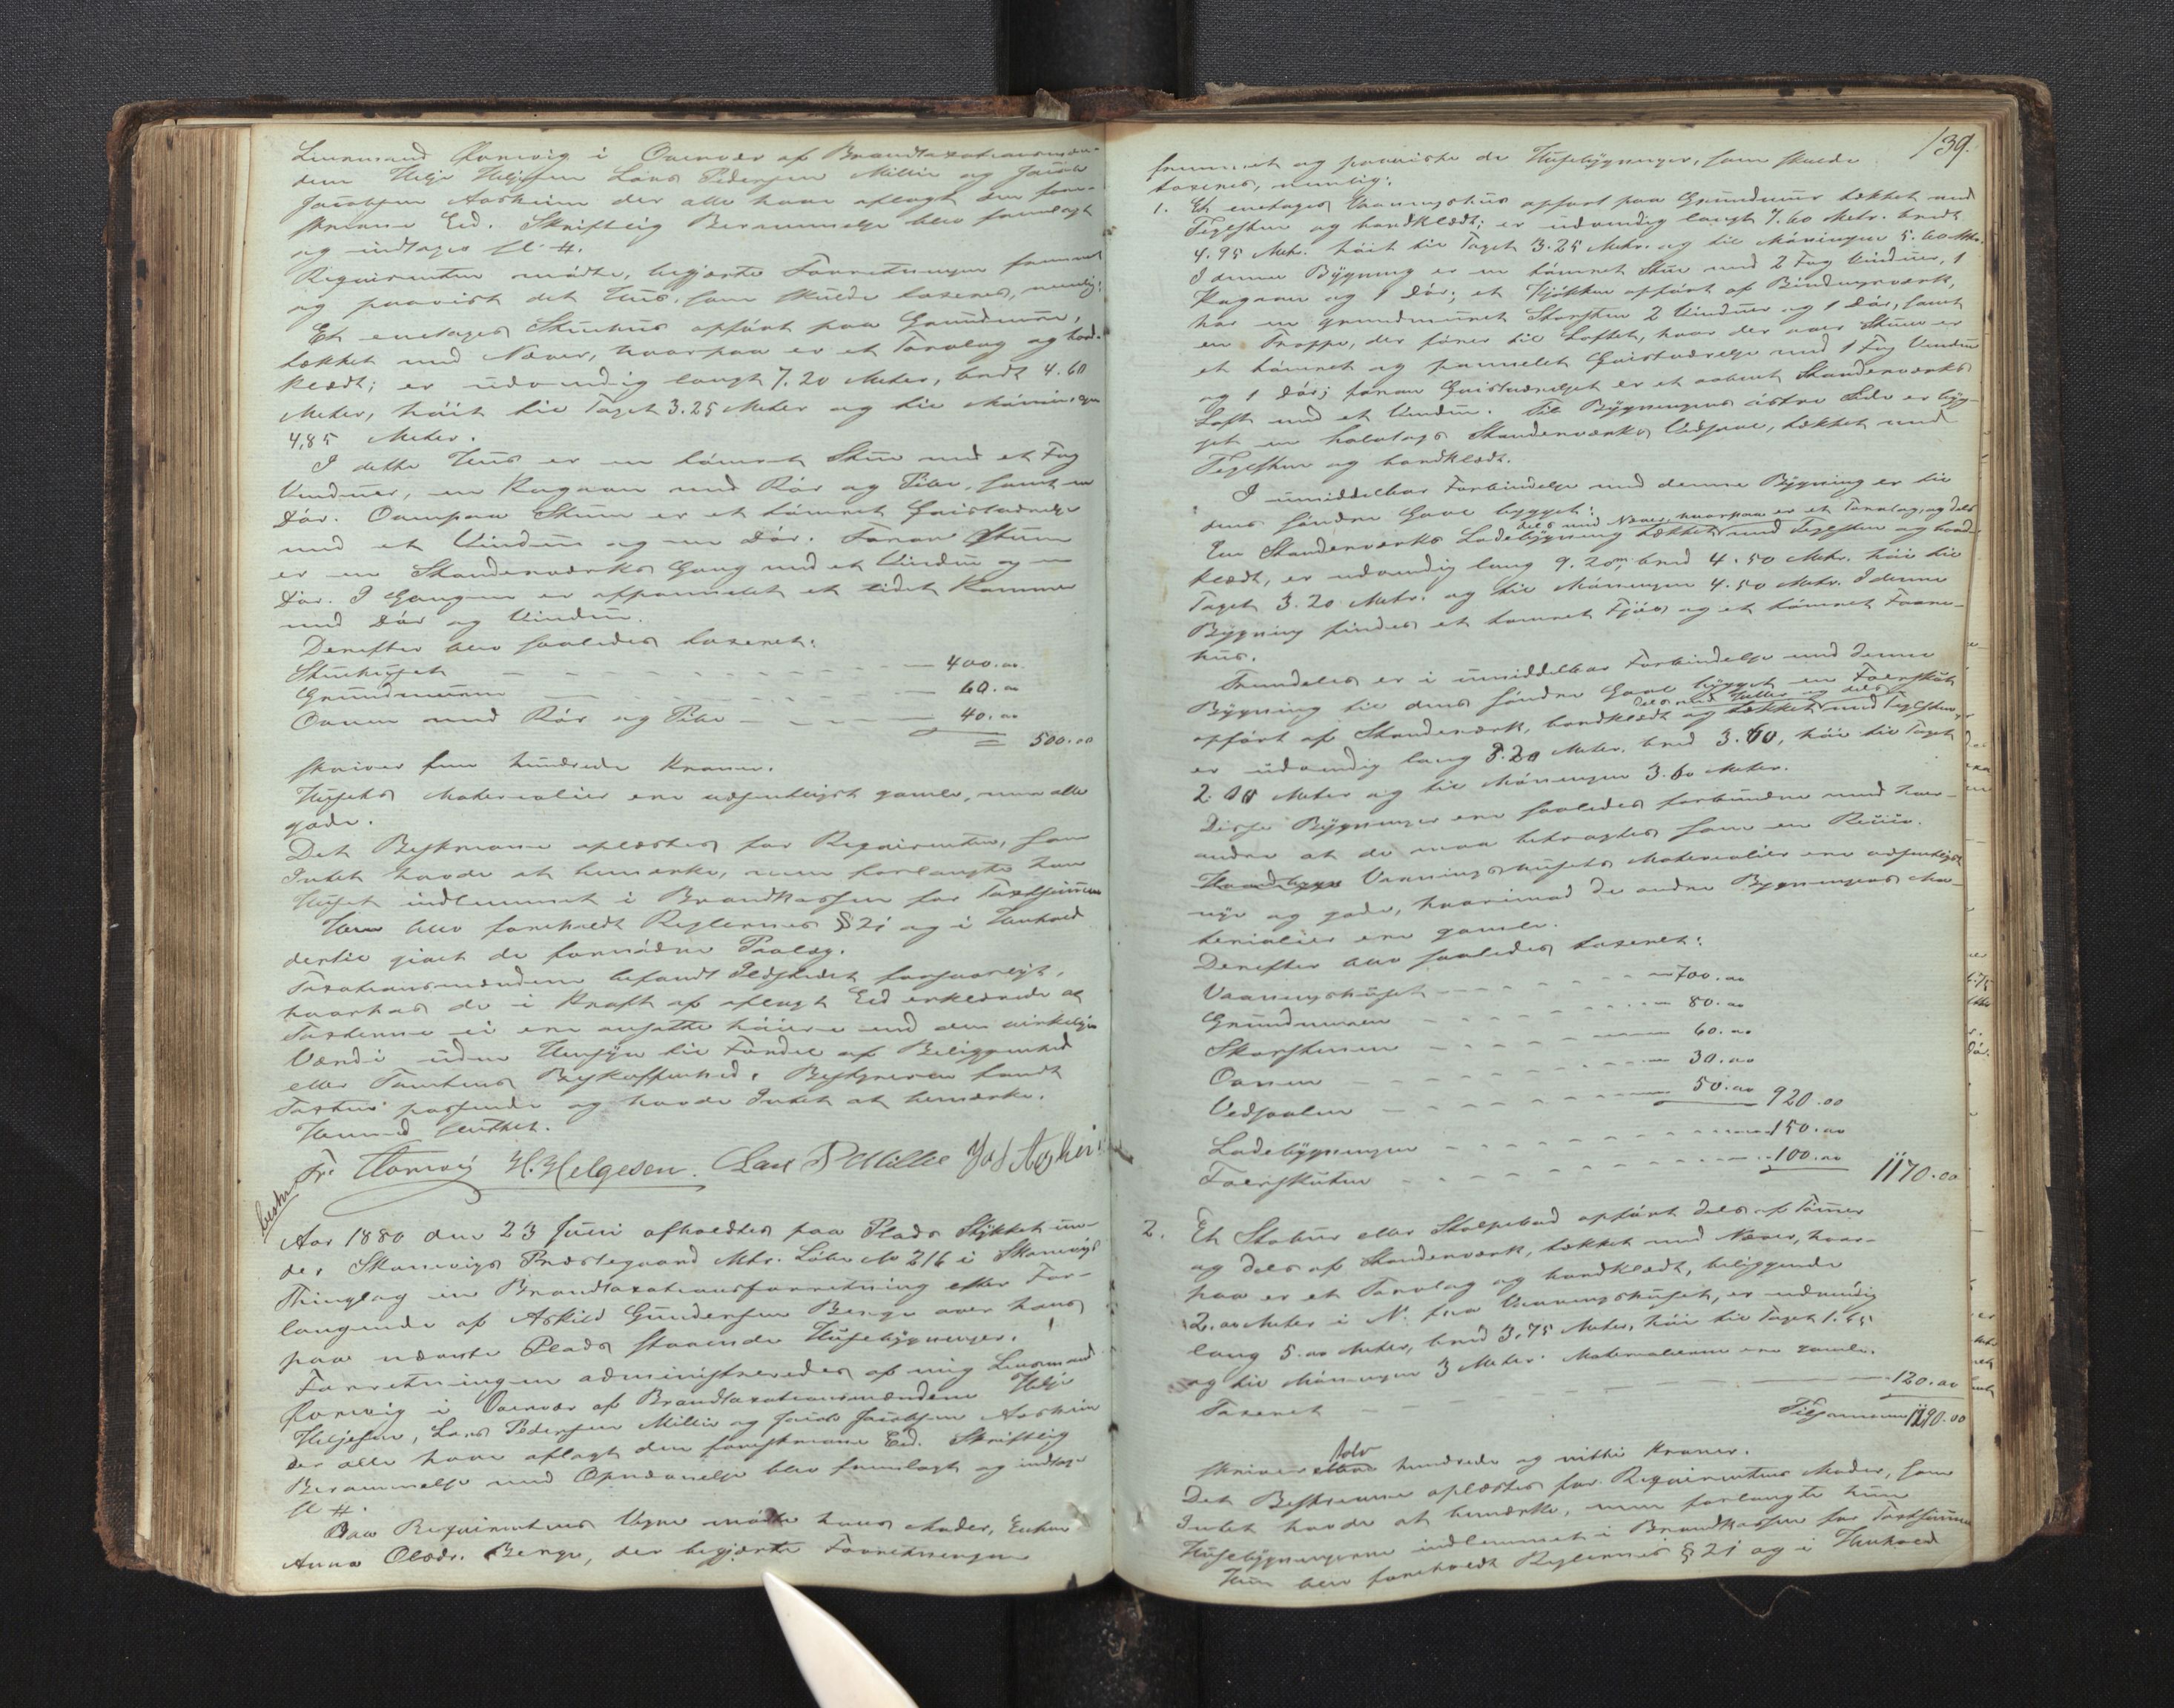 Lensmand Horneig i Overvær af Brandtaxationsmæn-
dene Helje Heljesen Lars Pedersen Millie og Jacob
Jacobsen Aasheim der alle have aflagt den fore-
skrevne Eed. Skriftlig Berammelse blev fremlagt
og indtages sl. #.
Reqvirenten mødte, begjærte Forretningen fremmet
og paaviste det Huus, som skulde taxeres, nemlig:
Et eenetages Stuehuus opført paa Grundmuur,
tækket med Næver, hvorpaa er et Torvlag og bord-
klædt; er udvendig langt 7.20 Meter, bredt 4.60
Meter, høit til Taget 3.25 Meter og til Møningen
4,85 Meter.
I dette Huus er en tømret Stue med et Fag
Vinduer, en Kagovn med Rør og Pibe, samt en
Dør. Ovenpaa Stuen er et tømret Gaistværelse
med et Vindue og en Dør. Foran Stuen
er en Standerværks Gang med et Vindue og en
Dør. I Gangen er afpanelet et lidet Kammer
med Dør og Vindue.
Derefter blev saaledes taxeret:
Stuehuset 400.00
Grundmuren 60.00
Ovnen med Rør og Pibe 40.00
= 500.00
skriver fem hundrede Kroner.
Husets Materialier ere væsentligst gamle, men alle
gode.
Det Beskrevne oplæstes for Reqvirenten, som
Intet havde at bemærke, men forlangte han
Huset indlemmet i Brandkassen for Taxtsummen
Han blev foreholdt Reglernes § 21 og i Henhold
dertil givet de fornødne Paalæg.
Taxationsmændene befandt Ildstedet forsvarligt,
hvorhos de i Kraft af aflagt Eed erklærede at
Taxterne ei ere ansatte høiere end den virkelige
Værdi uden Hensyn til Fordel af Beliggenhed
eller Tomtens Beskaffenhed. Bestyreren fandt
Taxten passende og havde Intet at bemærke.
Hermed sluttet.
H. Helgesen. Lars P Millie Jac Aashei
beskr
Aar 1880 den 23 Juni afholdtes paa Plads Stykket un-
der Skonevigs Præstegaard Mtr. Løbe No 216 i Skonevigs
Thinglag en Brandtaxationsforretning efter For-
langende af Askild Gundersen Berge over hans
paa nævnte Plads staaende Husebygninger.
Forretningen administreredes af mig Lensmand
Horneig i Overvær af Brandtaxationsmændene Helje
Heljesen, Lars Pedersen Millie og Jacob Jacobsen Aasheim
der alle have aflagt den foreskrevne Eed. Skriftlig
Berammelse med Opnævnelse blev fremlagt og indtages
sl #.
Paa Reqvirentens Vegne mødte hans Moder, Enken
Anna Olsdr. Berge, der begjærte Forretningen
139.
fremmet og paaviste de Husebygninger, som skulde
taxeres, nemlig:
1. Et eenetages Vaaningshuus opført paa Grundmuur tækket med
Teglsteen og bordklædt; er udvendig langt 7.60 Metr. bredt
4.95 Metr. høit til Taget 3.25 Metr. og til Møningen 5.60 Mtr.
I denne Bygning er en tømret Stue med 2 Fag Vinduer, 1
Kagovn og 1 Dør; et Kjøkken opført af Bindingsværk,
har en grundmuret Skorsteen 2 Vinduer og 1 Dør, samt
en Trappe, der fører til Loftet, hvor der over Stuen er
et tømret og panelet Gaistværelse med 1 Fag Vindue
og 1 Dør; foran Gaistværelset er et aabent Standerværks
Loft med et Vindue. Til Bygningens østre Side er byg-
get en halvtags Standerværks Vedsval, tækket med
Teglsteen og bordklædt.
I umiddelbar Forbindelse med denne Bygning er til
dens søndre Gavl bygget:
dels med Næver, hvorpaa er et Torvlag, og dels
En Standerværks Ladebygning tækket med Teglsteen og bord-
klædt, er udvendig lang 9.20m, bred 4.50 Metr. høi til
Taget 3.20 Metr. og til Møningen 4.50 Metr. I denne
Bygning findes et tømret Fjøs og et tømret Faare-
huus.
Fremdeles er i umiddelbar Forbindelse med denne
Bygning til dens søndre Gavl bygget en Foerskut
dels med Heller og dels
opført af Standerværk, bordklædt og tækket med Teglsteen,
er udvendig lang 8.20 Meter, bred 3.60, høi til Taget
2.00 Meter og til Møningen 3.60 Meter.
Disse Bygninger ere saaledes forbundne med hver-
andre at de maa betragtes som en Risico.
Vaaningshusets Materialier ere væsentligst
nye og gode, hvorimod de andre Bygningers Ma-
terialier ere gamle.
Derefter blev saaledes taxeret:
Vaaningshuset 700.00
Grundmuren 80.00
Skorstenen 60.00
Ovnen 30.00
Vedsvalen 50.00 920.00
Ladebygningen 150.00
Foerskuten 100.00 1170.00
2. Et Stabur eller Stolpebod opført dels af Tømmer
og dels af Standerværk, tækket med Næver, hvor-
paa er et Torvlag og bordklædt, beliggende
2.00 Meter i N. fra Vaaningshuset, er udvendig
lang 5.00 Meter, bred 3,75 Meter, høi til Taget 1.55
og til Møningen 3 Meter. Materialierne ere gamle.
Taxeret 120.00
Tilsammen 1290.00
tolv
skriver elleve hundrede og nitti Kroner.
Det Beskrevne oplæstes for Reqvirentens Moder, som
Intet havde at bemærke, men forlangte hun
Husebygningerne indlemmet i Brandkassen for Taxtsummen
Hun blev foreholdt Reglernes § 21 og i Henhold